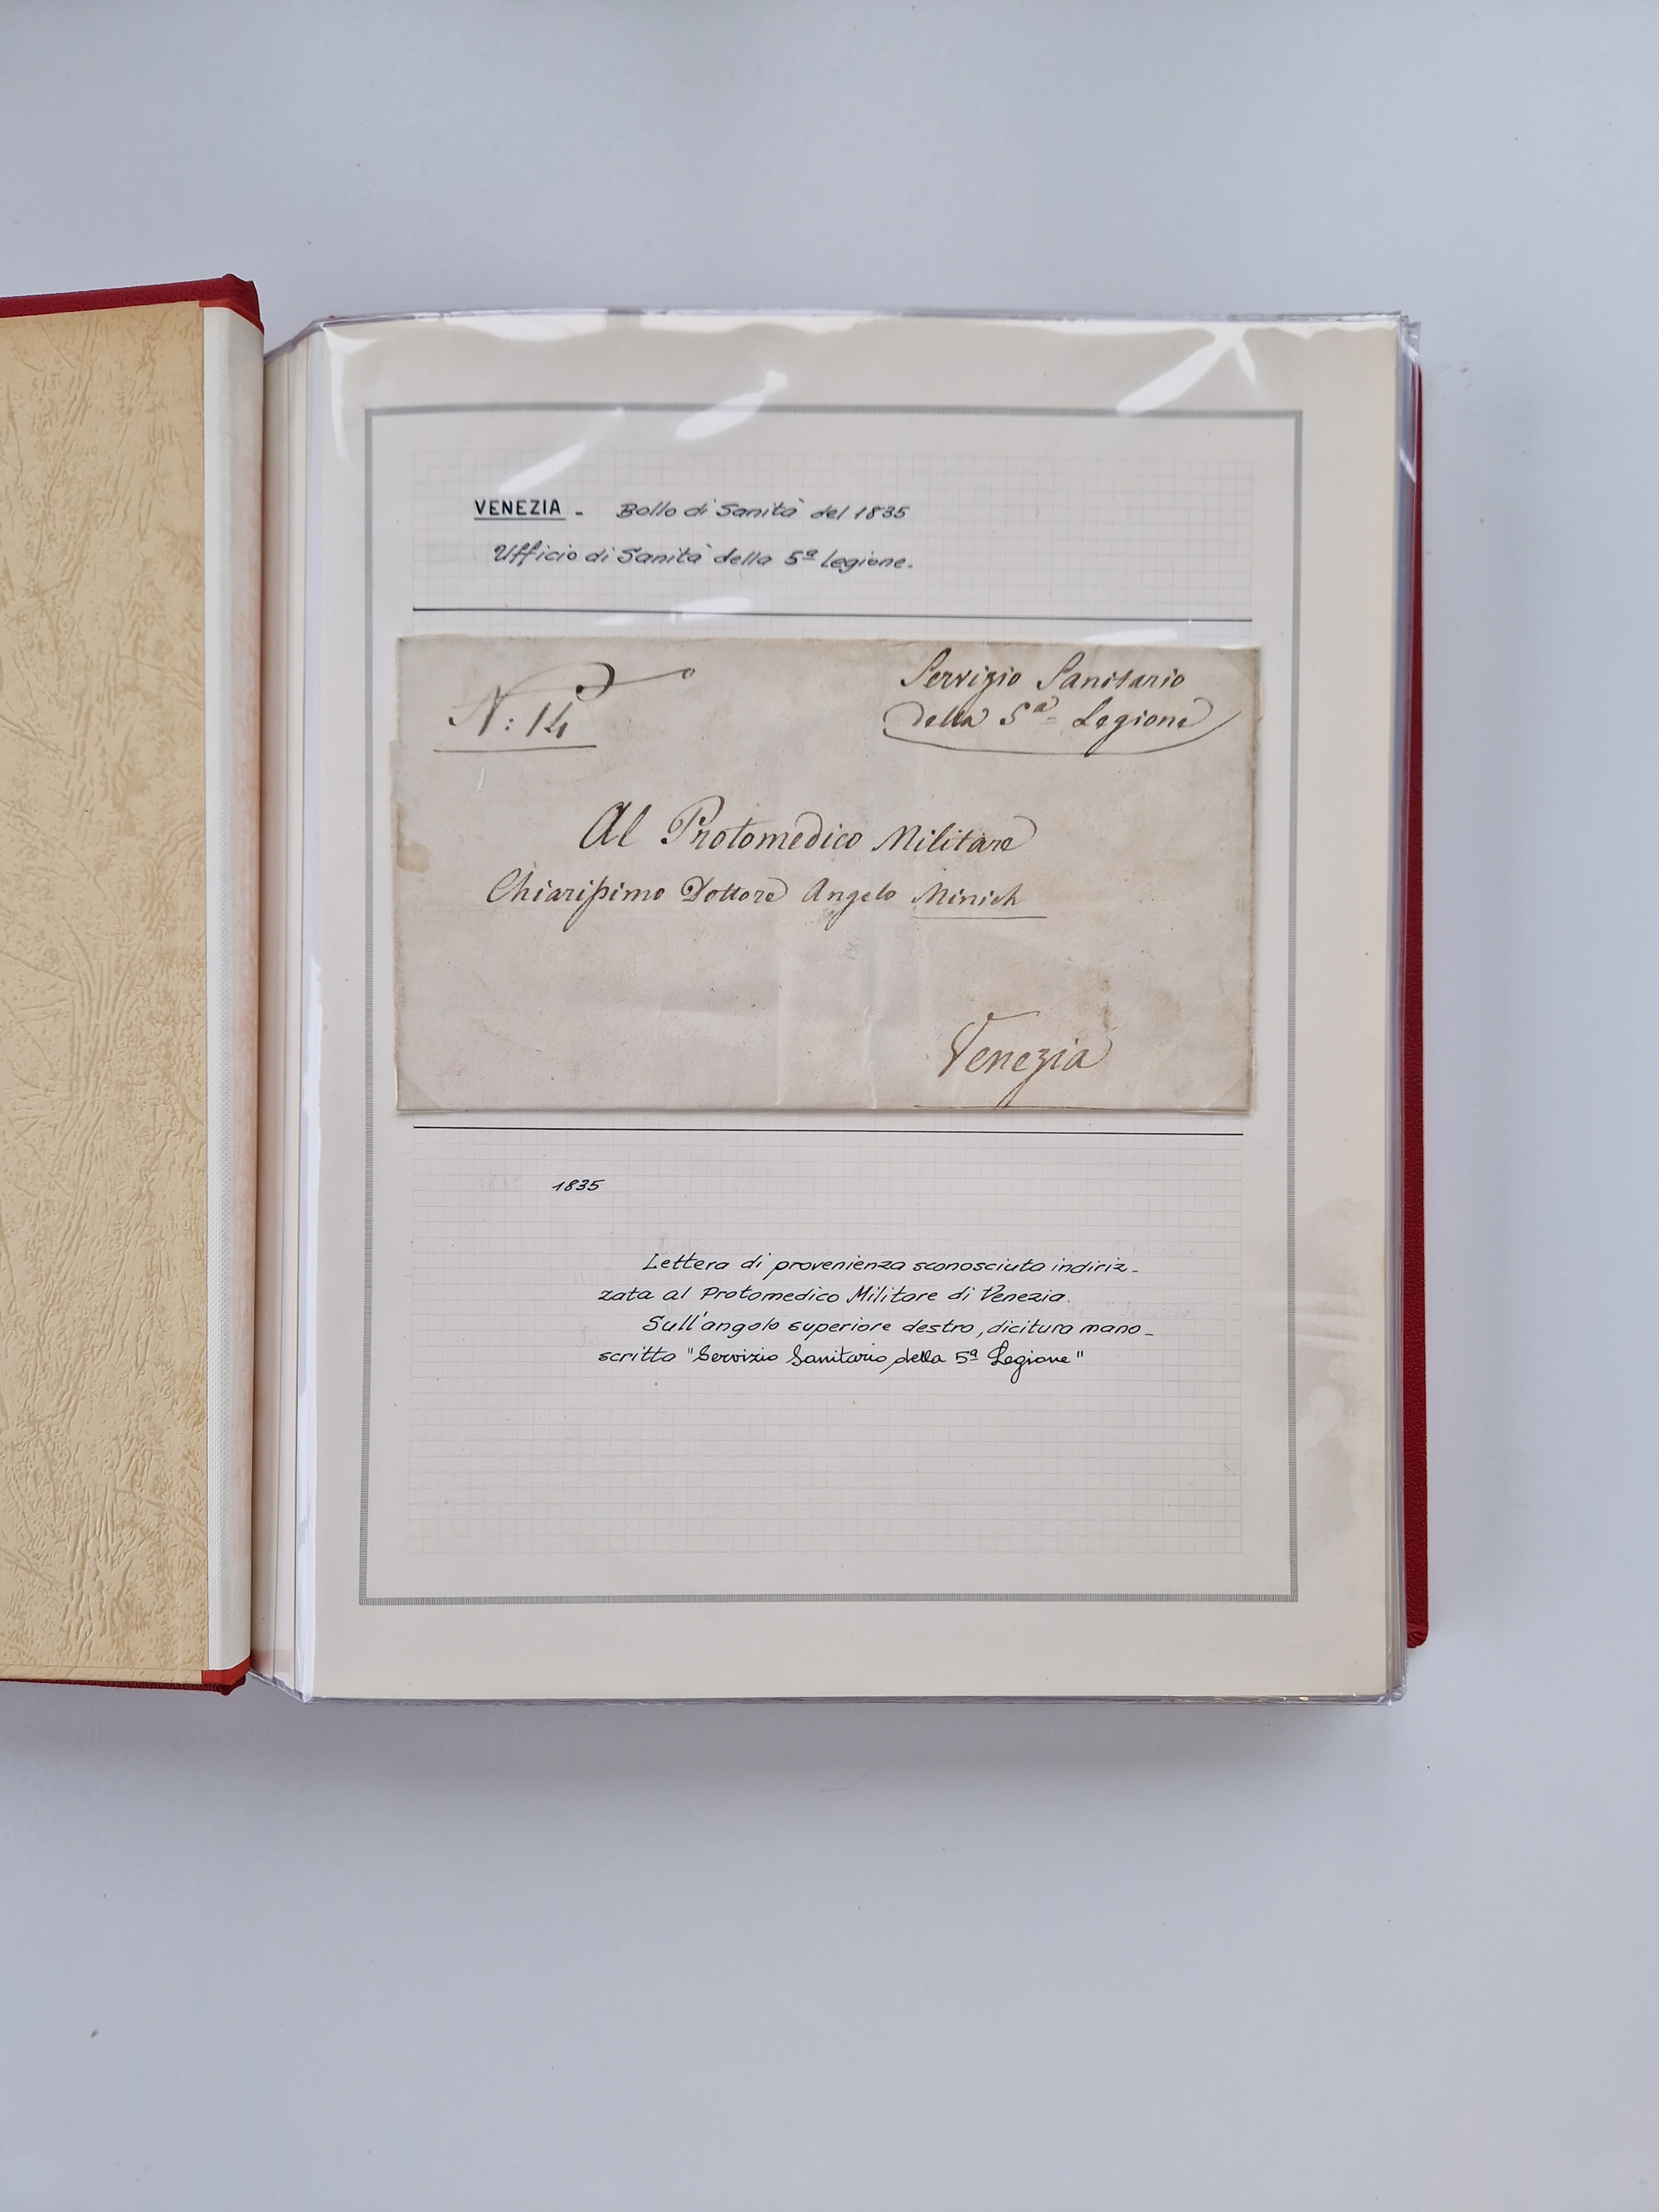 VENEZIA - Bollo di Sanità del 1835
Ufficio di Sanità della 5ª Legione.
N: 14
Servizio Sanitario
della 5ª Legione
Al Protomedico Militare
Chiarissimo Dottore Angelo Minich
Venezia
1835
Lettera di provenienza sconosciuta indiriz-
zata al Protomedico Militare di Venezia.
Sull'angolo superiore destro, dicitura mano-
scritta "Servizio Sanitario della 5ª Legione"